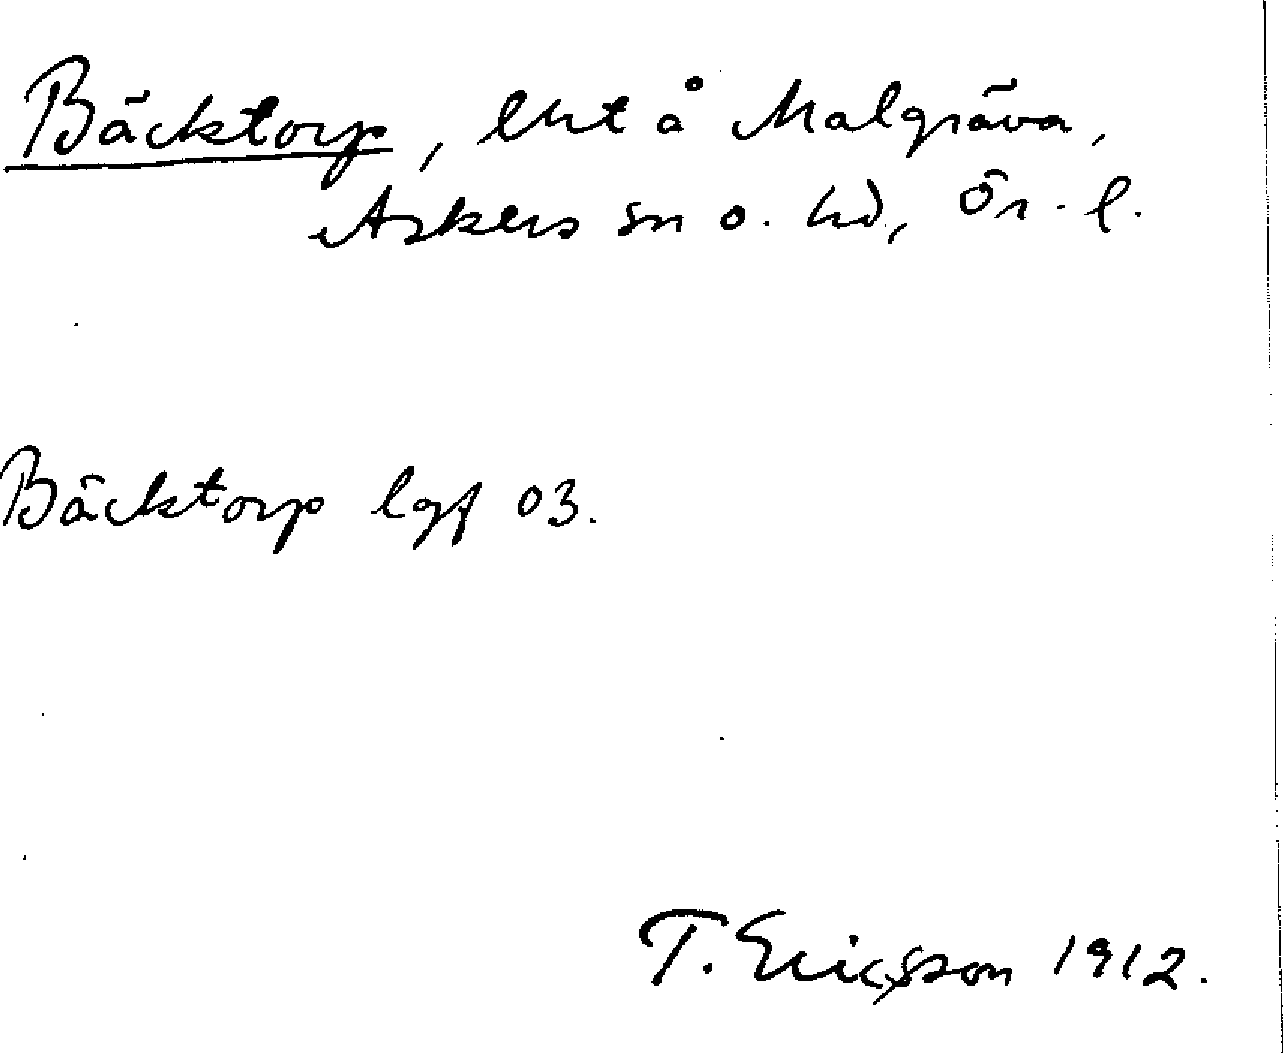 Bäcktorp, lht å Malgräva,
Askers sn o. hd, Ör. l.
Bäcktorp lgf 03.
T. Ericsson 1912.